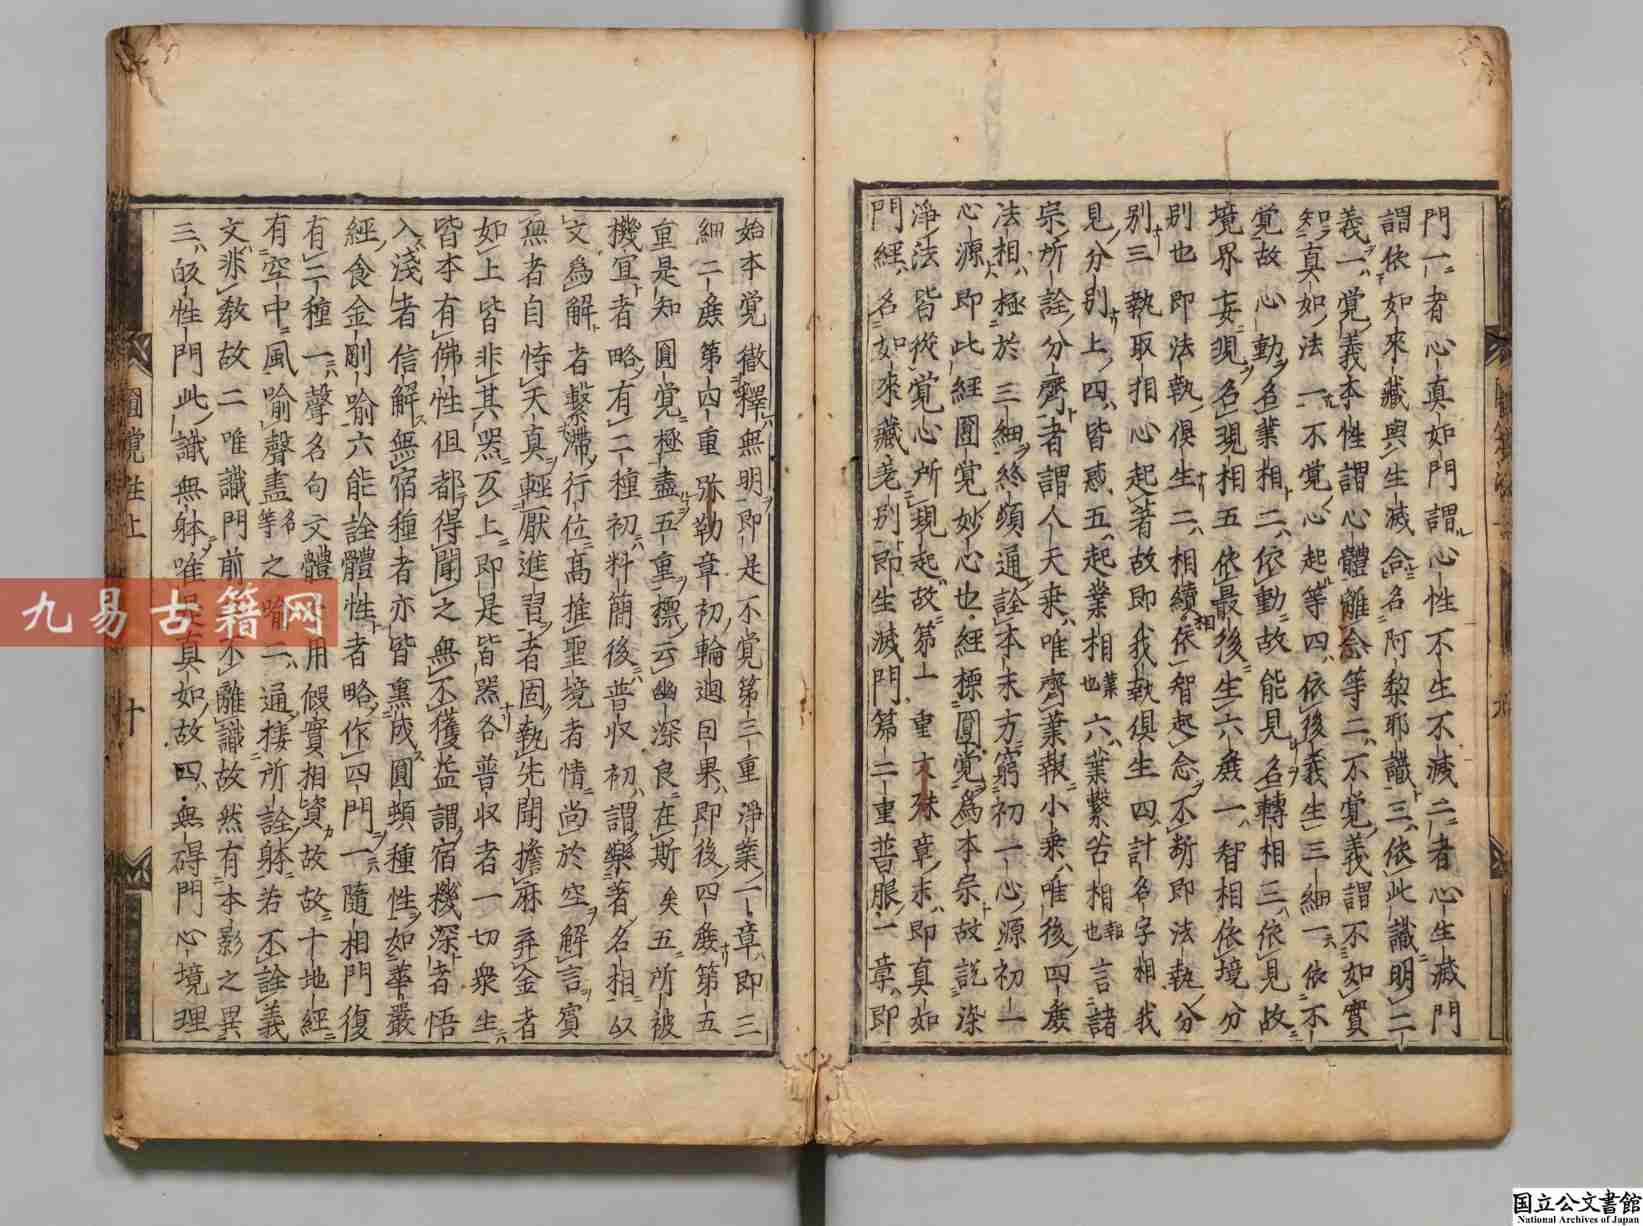 門一者心真如門謂心性不生不滅二者心生滅門
謂依如來藏與生滅合名阿黎耶識三依此識明二
義一覺義本性謂心體離念等二不覺義謂不如實
知真如法一不覺心起等四依後義生三細一依不
覺故心動名業相二依動故能見名轉相三依見故
境界妄現名現相五依最後生六麁一智相依境分
別也即法執俱生二相續相依智起念不斷即法執分
別三執取相心起著故即我執俱生四計名字相我
見分別上四皆惑五起業相業也六業繫苦相報也言諸
宗所詮分齊者謂人天乘唯齊業報小乘唯後四麁
法相極於三細終頓通詮本末方窮初一心源初一
心源即此經圓覺妙心也經標圓覺為本宗故說染
淨法皆從覺心所現起故第一重文殊章末即真如
門經名如來藏差別即生滅門第二重普眼一章即
始本覺徵釋無明即是不覺第三重淨業一章即三
細二麁第四重弥勒章初輪迴因果即後四麁第五
重是知圓覺極盡五重標云幽深良在斯矣五所被
機宜者略有二種初料簡後普收初謂樂著名相以
文為解者繫滯行位高推聖境者情尚於空解言賓
無者自恃天真輕厭進習者固執先聞擔麻弃金者
如上皆非其器反上即是皆器各普收者一切衆生
皆本有佛性但都得聞之無不獲益謂宿機深者悟
入淺者信解無宿種者亦皆熏成圓頓種性如華嚴
經食金剛喻六能詮體性者略作四門一隨相門復
有二種一聲名句文體用假實相資故故十地經
有空中風喻聲盡名等之喻二通接所詮躰若不詮義
文非教故二唯識門前不離識故然有本影之異
三皈性門此識無躰唯是真如故四無碍門心境理
圓覺
上
十
九易古籍网
国立公文書館
National Archives of Japan